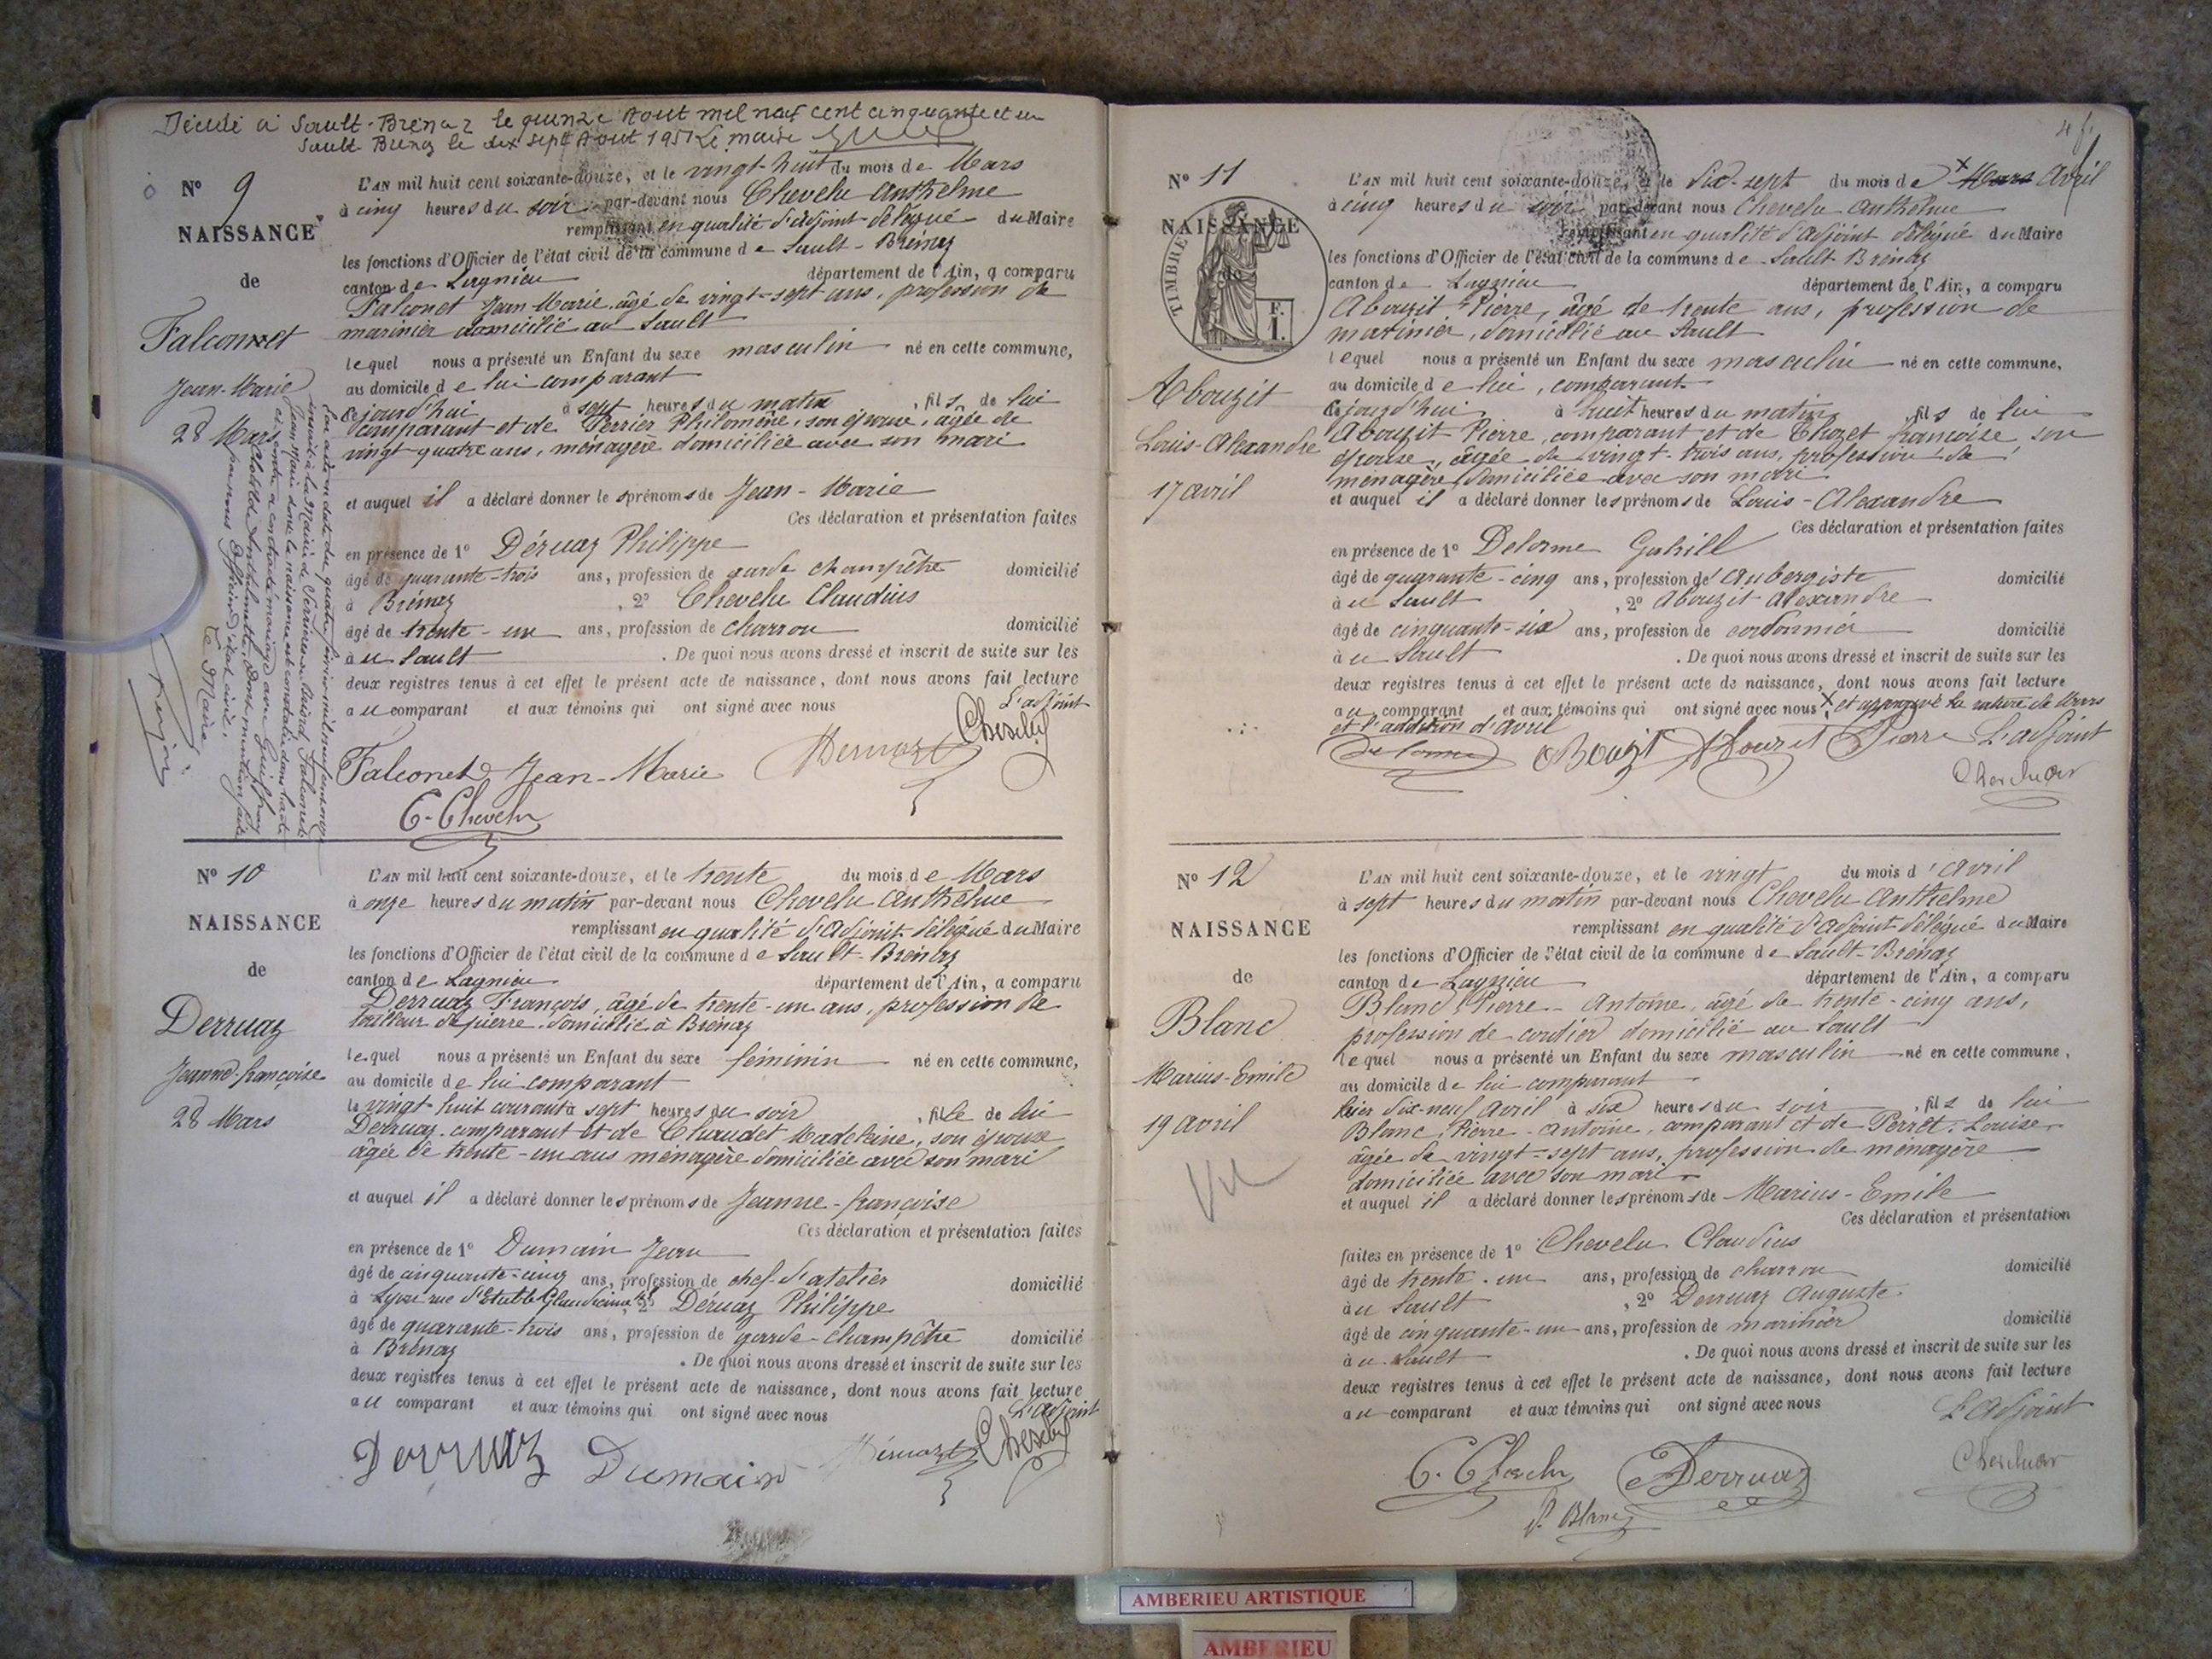 Décédé à Sault-Brénaz le quinze Aout mil neuf cent cinquante et un
Sault-Brénaz le dix sept Aout 1951 Le maire
N° 9
NAISSANCE
de
Falconnet
Jean-Marie
28 Mars
L'AN mil huit cent soixante-douze, et le vingt-huit du mois de Mars
à cinq heures du soir par-devant nous Chevelu Anthelme
remplissant en qualité d'adjoint délégué du Maire
les fonctions d'Officier de l'état civil de la commune de Sault-Brénaz
canton de Lagnieu département de l'Ain, a comparu
Falconet Jean-Marie, âgé de vingt-sept ans, profession de
marinier domicilié au Sault
lequel nous a présenté un Enfant du sexe masculin né en cette commune,
au domicile de lui comparant
Cejourd'hui à sept heures du matin, fils de lui
comparant et de Perrier Philomène, son épouse, âgée de
vingt-quatre ans, ménagère domiciliée avec son mari
et auquel il a déclaré donner les prénoms de Jean-Marie
Ces déclaration et présentation faites
en présence de 1° Déruaz Philippe
âgé de quarante-trois ans, profession de garde champêtre domicilié
à Brénaz, 2° Chevelu Claudius
âgé de trente-un ans, profession de charron domicilié
au Sault. De quoi nous avons dressé et inscrit de suite sur les
deux registres tenus à cet effet le présent acte de naissance, dont nous avons fait lecture
au comparant et aux témoins qui ont signé avec nous
L'adjoint
Falconet Jean-Marie
C. Chevelu
inscrit à la Mairie de Serrières de Falconet
Jean Marie dont la naissance est constatée dans l'acte
ci-contre a contracté mariage avec
dont mention faite
par nous Officier d'état civil,
Le Maire,
N° 10
NAISSANCE
de
Derruaz
Jeanne-françoise
28 Mars
L'AN mil huit cent soixante-douze, et le trente du mois de Mars
à onze heures du matin par-devant nous Chevelu Anthelme
remplissant en qualité d'Adjoint délégué du Maire
les fonctions d'Officier de l'état civil de la commune de Sault-Brénaz
canton de Lagnieu département de l'Ain, a comparu
Derruaz François, âgé de trente-un ans, profession de
tailleur de pierre, domicilié à Brénaz
lequel nous a présenté un Enfant du sexe féminin né en cette commune,
au domicile de lui comparant
le vingt-huit courant à sept heures du soir, fille de lui
Derruaz comparant et de Chaudet Madeleine, son épouse
âgée de trente-un ans ménagère domiciliée avec son mari
et auquel il a déclaré donner les prénoms de Jeanne-françoise
Ces déclaration et présentation faites
en présence de 1° Dumain Jean
âgé de cinquante-cinq ans, profession de chef d'atelier domicilié
à Lyon rue, 2° Déruaz Philippe
âgé de quarante-trois ans, profession de garde-champêtre domicilié
à Brénaz. De quoi nous avons dressé et inscrit de suite sur les
deux registres tenus à cet effet le présent acte de naissance, dont nous avons fait lecture
au comparant et aux témoins qui ont signé avec nous
L'adjoint
Derruaz Dumain
N° 11
NAISSANCE
de
TIMBRE
1 F.
Abouzit
Louis-Alexandre
17 avril
L'AN mil huit cent soixante-douze, et le dix-sept du mois de Mars Avril
à cinq heures du soir par-devant nous Chevelu Anthelme
remplissant en qualité d'Adjoint délégué du Maire
les fonctions d'Officier de l'état civil de la commune de Sault-Brénaz
canton de Lagnieu département de l'Ain, a comparu
Abouzit Pierre, âgé de trente ans, profession de
marinier, domicilié au Sault
lequel nous a présenté un Enfant du sexe masculin né en cette commune,
au domicile de lui, comparant
Cejourd'hui à huit heures du matin, fils de lui
Abouzit Pierre, comparant et de françoise, son
épouse, âgée de vingt-trois ans, profession de
ménagère, domiciliée avec son mari
et auquel il a déclaré donner les prénoms de Louis-Alexandre
Ces déclaration et présentation faites
en présence de 1° Delorme
âgé de quarante-cinq ans, profession d'Aubergiste domicilié
au Sault, 2° Abouzit Alexandre
âgé de cinquante-six ans, profession de cordonnier domicilié
au Sault. De quoi nous avons dressé et inscrit de suite sur les
deux registres tenus à cet effet le présent acte de naissance, dont nous avons fait lecture
au comparant et aux témoins qui ont signé avec nous, et approuvé la rature de Mars
et l'addition d'avril
Delorme Abouzit Abouzit Pierre L'adjoint
N° 12
NAISSANCE
de
Blanc
Marius-Emile
19 avril
Vu
L'AN mil huit cent soixante-douze, et le vingt du mois d'Avril
à sept heures du matin par-devant nous Chevelu Anthelme
remplissant en qualité d'Adjoint délégué du Maire
les fonctions d'Officier de l'état civil de la commune de Sault-Brénaz
canton de Lagnieu département de l'Ain, a comparu
Blanc Pierre-Antoine, âgé de trente-cinq ans,
profession de cordier domicilié au Sault
lequel nous a présenté un Enfant du sexe masculin né en cette commune,
au domicile de lui comparant
hier dix-neuf Avril à six heures du soir, fils de lui
Blanc, Pierre-Antoine, comparant et de Perret Louise
âgée de vingt-sept ans, profession de ménagère
domiciliée avec son mari
et auquel il a déclaré donner les prénoms de Marius-Emile
Ces déclaration et présentation
faites en présence de 1° Chevelu Claudius
âgé de trente-un ans, profession de charron domicilié
au Sault, 2° Derruaz Auguste
âgé de cinquante-un ans, profession de marinier domicilié
au Sault. De quoi nous avons dressé et inscrit de suite sur les
deux registres tenus à cet effet le présent acte de naissance, dont nous avons fait lecture
au comparant et aux témoins qui ont signé avec nous
L'Adjoint
C. Chevelu Derruaz
P. Blanc
AMBERIEU ARTISTIQUE
AMBERIEU